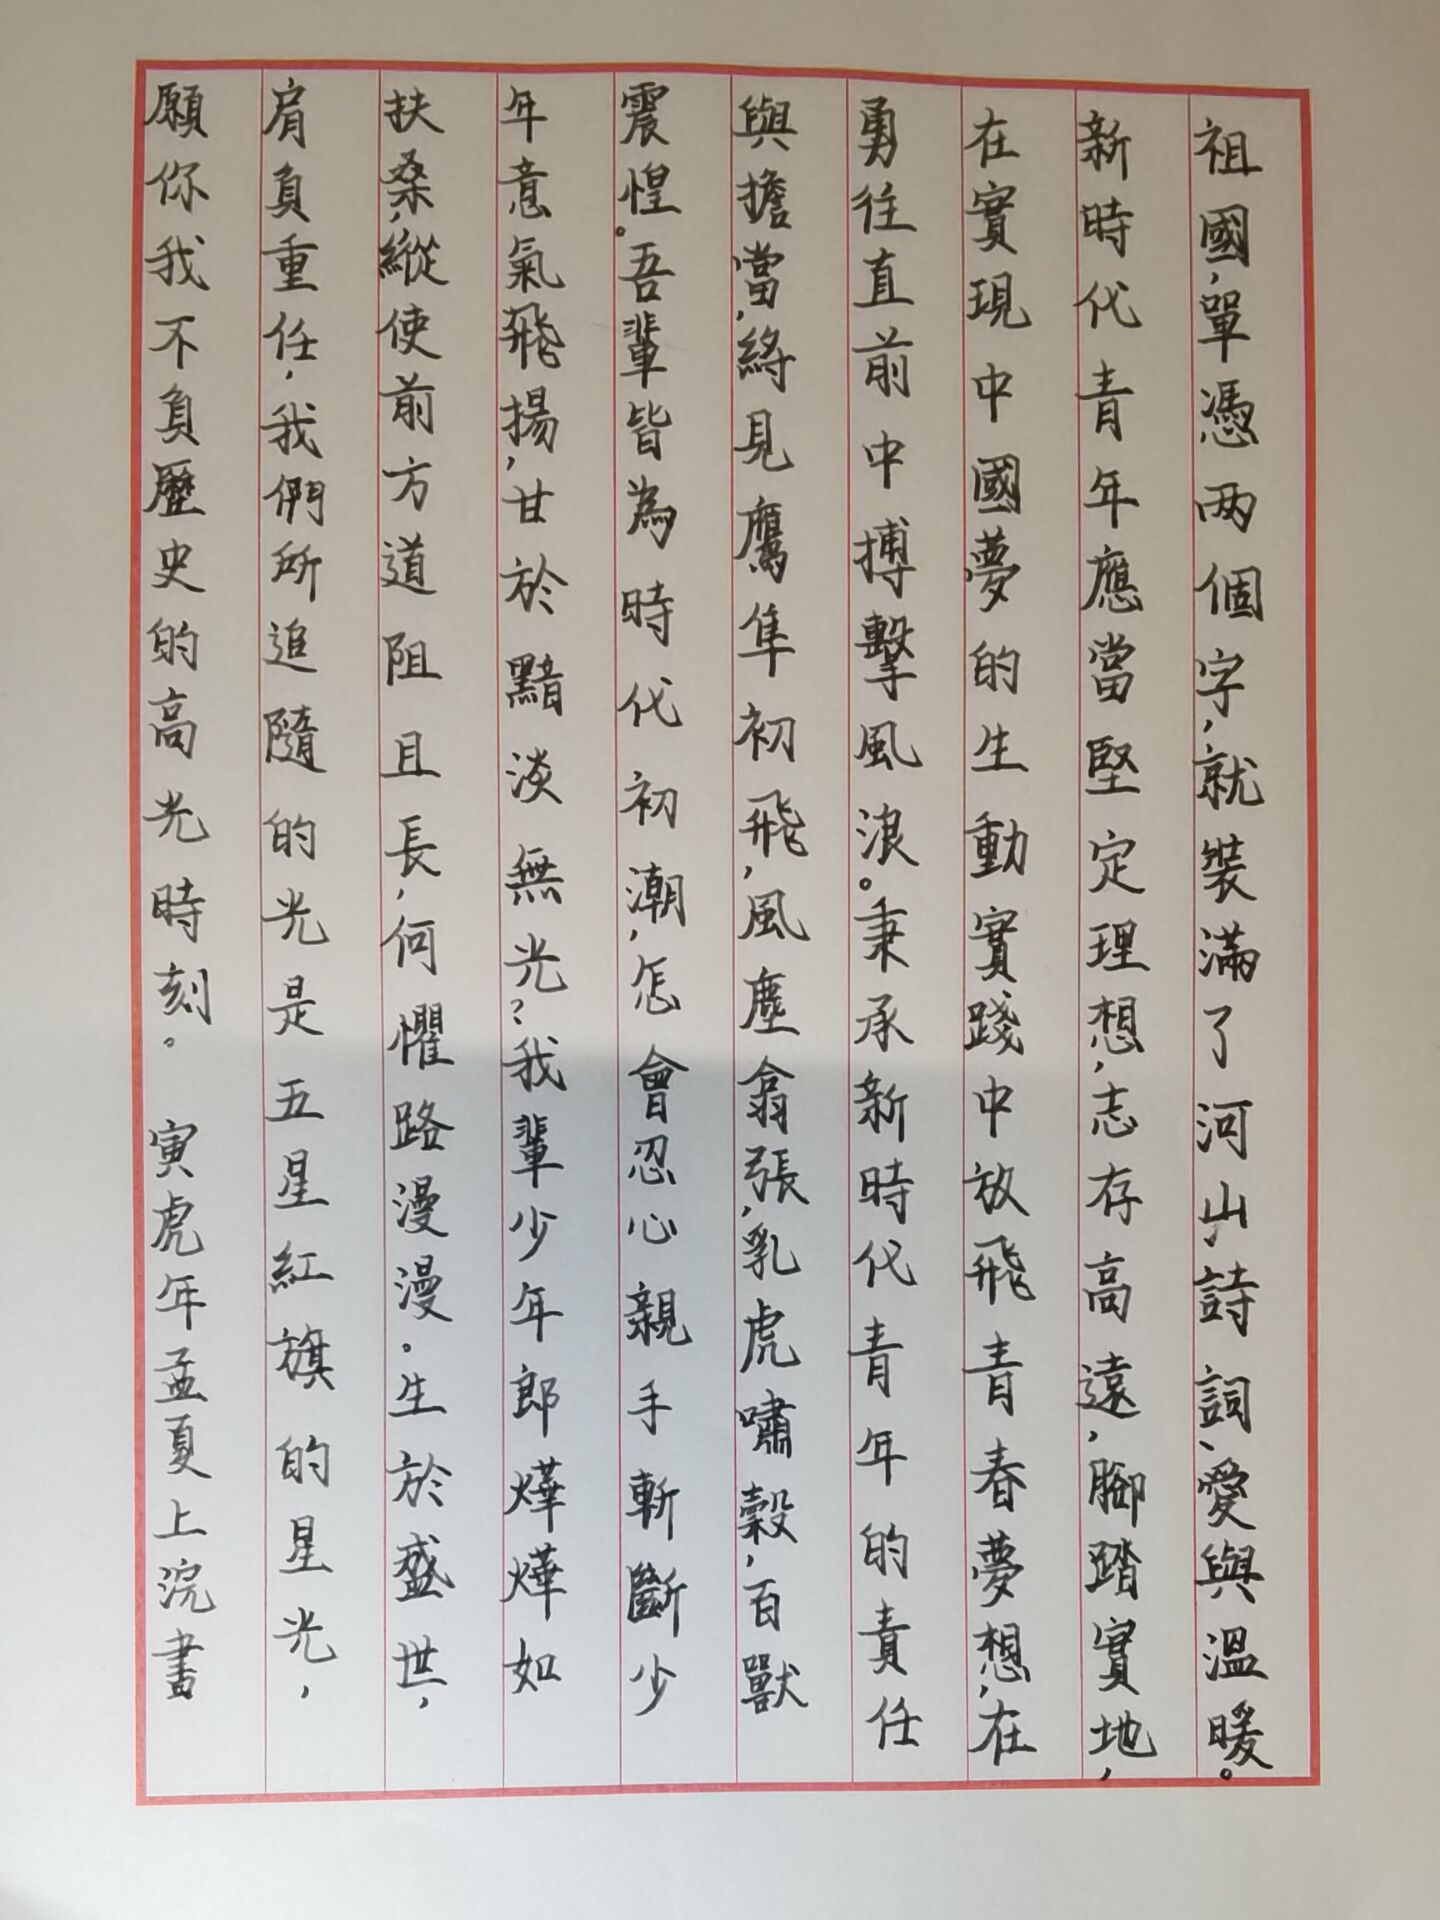 祖國,單憑两個字,就裝滿了河山詩詞、愛與溫暖。
新時代青年應當堅定理想,志存高遠,腳踏實地,
在實現中國夢的生動實踐中放飛青春夢想,在
勇往直前中搏擊風浪。秉承新時代青年的責任
與擔當,終見鷹隼初飛,風塵翕張,乳虎嘯穀,百獸
震惶。吾輩皆為時代初潮,怎會忍心親手斬斷少
年意氣飛揚,甘於黯淡無光?我輩少年郎燁燁如
扶桑,縱使前方道阻且長,何懼路漫漫。生於盛世,
肩負重任,我們所追隨的光是五星紅旗的星光,
願你我不負歷史的高光時刻。 寅虎年孟夏上浣書